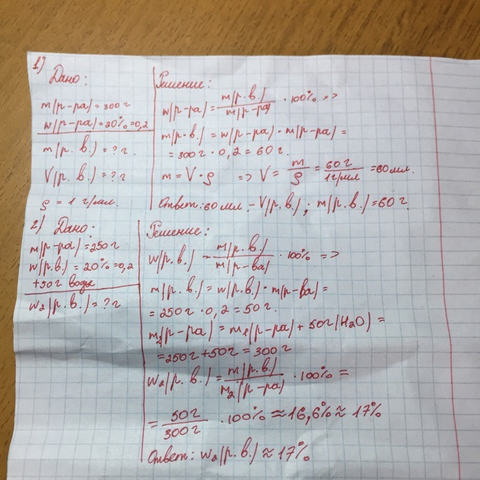 1)
Дано:
m(р-ра)=300г
w(р-ра)=20%=0,2
m(р.в.)=?г
V(р.в.)=?г
ρ=1 г/мл.
Решение:
w(р-ра)=m(р.в.)/m(р-ра)·100% =>
m(р.в.)=w(р-ра)·m(р-ра)=
=300г·0,2=60г.
m=V·ρ => V=m/ρ=60г/1г/мл=60мл.
Ответ: 60мл.-V(р.в.); m(р.в.)=60г.
2) Дано:
m(р-ра)=250г
w(р.в.)=20%=0,2
+50г воды
w₂(р.в.)=?г
Решение:
w(р.в.)=m(р.в.)/m(р-ва)·100% =>
m(р.в.)=w(р.в.)·m(р-ва)=
=250г·0,2=50г.
m₂(р-ра)=m₁(р-ра)+50г(H₂O)=
=250г+50г=300г
w₂(р.в.)=m(р.в.)/m₂(р-ра)·100%=
=50г/300г·100%≈16,6%≈17%
Ответ: w₂(р.в.)≈17%